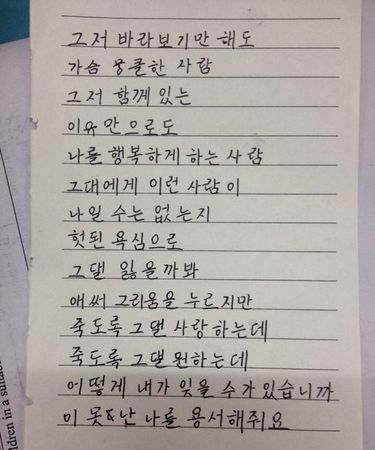 그저 바라보기만 해도
가슴 뭉클한 사람
그저 함께 있는
이유 만으로도
나를 행복하게 하는 사람
그대에게 이런 사람이
나일 수는 없는지
헛된 욕심으로
그댈 잃을까봐
애써 그리움을 누르지만
죽도록 그댈 사랑하는데
죽도록 그댈 원하는데
어떻게 내가 잊을 수가 있습니까
이 못난 나를 용서해줘요
ldren in a suitab